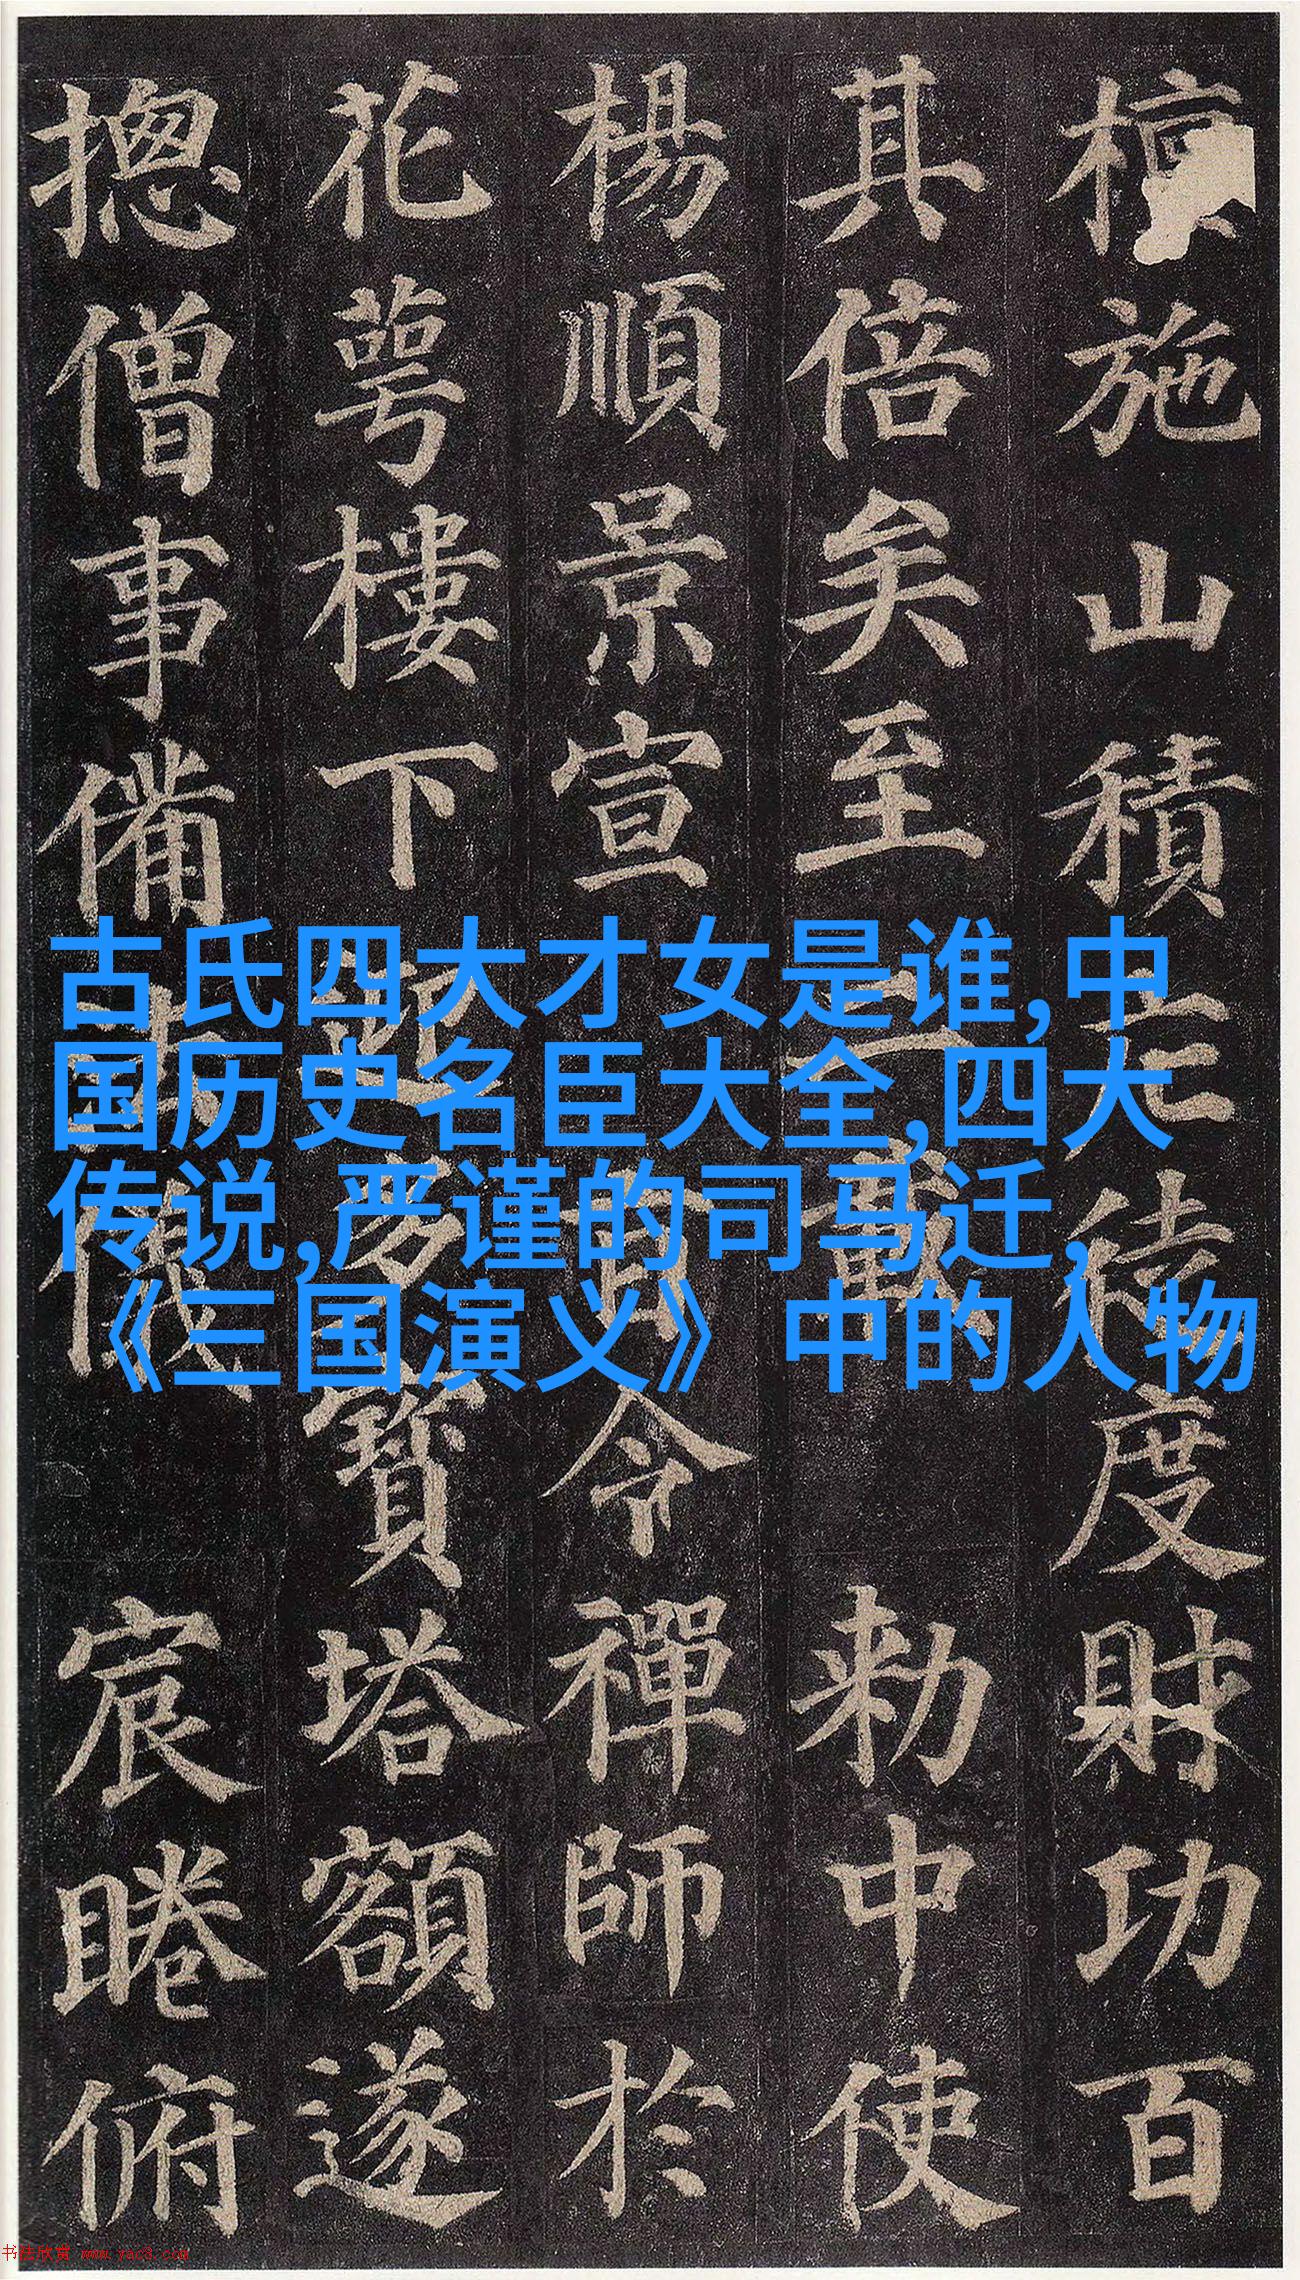 檀施山積庀徒度財功百
其倍矣至二載勅中使
楊順景宣旨令禪師於
花萼樓下迎多寶塔額遂
摠僧事備法儀宸睠俯
古氏四大才女是谁,中
国历史名臣大全,四大
传说,严谨的司马迁,
《三国演义》中的人物
书法欣赏 www.yac3.com